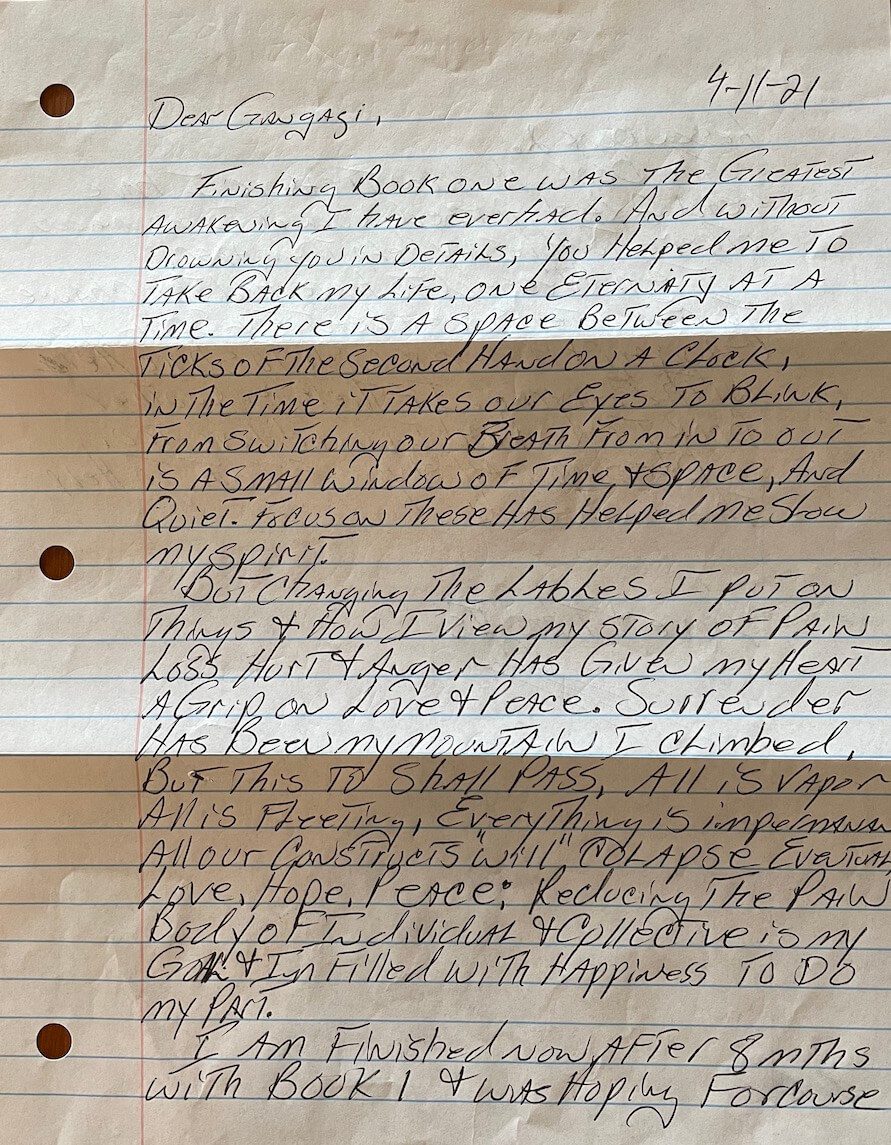 4-11-21
Dear Gangagi,
Finishing Book one was the Greatest
Awakening I have ever had. And without
Drowning you in Details, you Helped me To
Take Back my Life, one Eternaty AT A
Time. There is A space Between The
Ticks of the Second Hand on A Clock,
in The Time it Takes our Eyes To Blink,
From switching our Breath From in To out
is A small window of Time & space, And
Quiet. Focus on These HAS Helped me Slow
my spirit.
But Changing The Lables I put on
Things & How I view my story of Pain
Loss Hurt & Anger HAS Given my Heart
A Grip on Love & Peace. Surrender
HAS Been my mountain I climbed,
But This To Shall Pass, All is vapor
All is Fleeting, Everything is
All our Constructs "will" Colapse
Love, Hope, Peace; Reducing The Pain
Body of Individual & Collective is my
& Im Filled with Happiness To Do
my Part.
I Am Finished now After 8 mths
with Book 1 & was Hoping For course